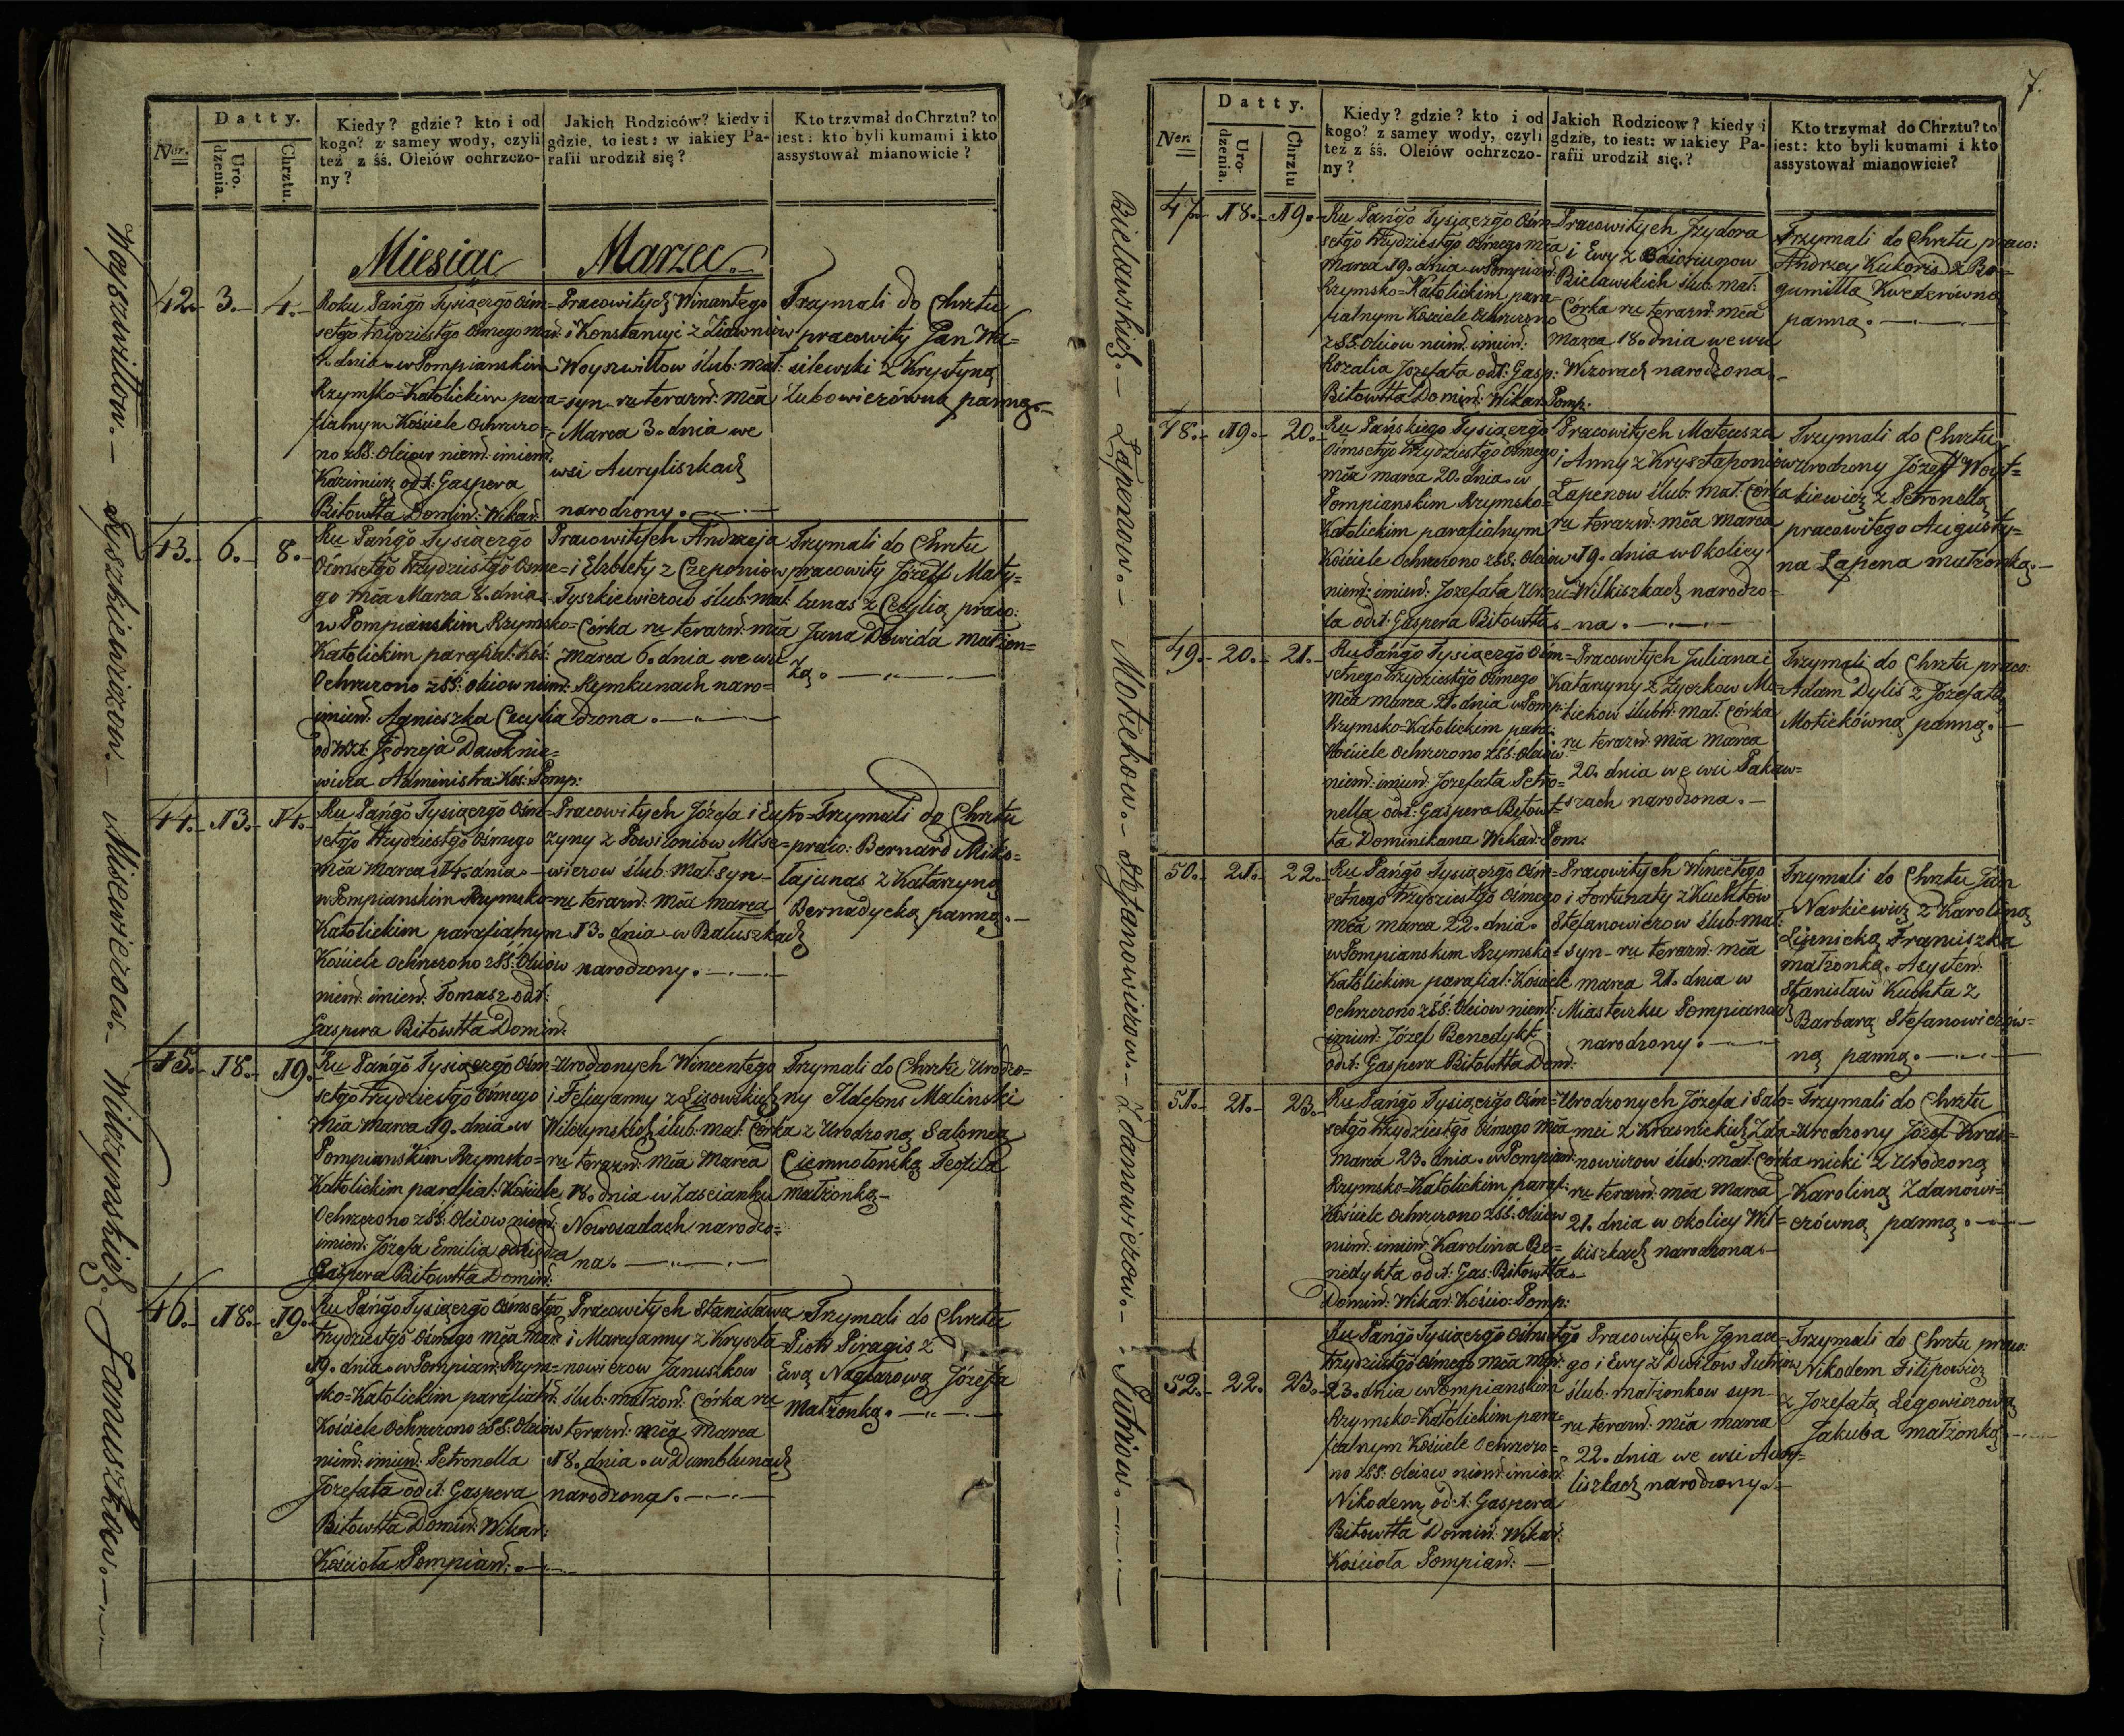 Datty.
Ner.
Uro.
dzenia.
Chrztu.
Kiedy? gdzie? kto i od
kogo? z samey wody, czyli
też z śś. Oleiów ochrzczo-
ny?
Jakich Rodziców? kiedy i
gdzie, to iest: w iakiey Pa-
rafii urodził się?
Kto trzymał do Chrztu? to
iest: kto byli kumami i kto
assystował mianowicie?
Miesiąc Marzec.
Woyszwiłłow.
42. 3. 4.
Roku Pańgo Tysiączgo Ośm-
setgo trzydziestgo Osmego Mar.
4 dnia w Pompianskim
Rzymsko-Katolickim para-
fialnym Kościele Ochrzczo-
no z SS. Oleiow niem. imien.
Kazimierz od X. Gaspera
Bitowtta Domin. Wikar.
Pracowitych Winantego
i Konstancyi z
Woyszwiłłow ślub. mał.
syn ru terazn. mca
Marca 3. dnia we
wsi Auryliszkach
narodzony.
Trzymali do Chrztu
pracowity Jan Wa-
silewski z Krystyną
Zubowiczówną panną.
Tyszkiewiczow.
43. 6. 8.
Ru Pańgo Tysiączgo
Ośmsetgo trzydziestgo Osme-
go mca Marca 8. dnia
w Pompianskim Rzymsko-
Katolickim parafial. Koś.
Ochrzczono z SS. Oleiow niem.
imien. Agnieszka Cecylia
od WX. Jędrzeja Dawknie-
wicza Administra. Koś. Pomp.
Pracowitych Andrzeja
i Elżbiety z Czeponiow
Tyszkiewiczow ślub. mał.
Corka ru terazn. mca
Marca 6. dnia we wsi
Rymkunach naro-
dzona.
Trzymali do Chrztu
pracowity Józeff Maty-
lunas z Cecylią praco.
Jana Dowida małżon-
ką.
Misewiczow.
44. 13. 14.
Ru Pańgo Tysiączgo Ośm-
setgo trzydziestgo Ośmego
mca Marca 14. dnia
w Pompianskim Rzymsko-
Katolickim parafialnym
Kościele Ochrzczono z SS. Oleiow
niem. imien. Tomasz od X.
Gaspera Bitowtta Domin.
Pracowitych Józefa i Eufro-
zyny z Powiloniow Mise-
wiczow ślub. mał. syn
ru terazn. mca marca
13. dnia w Bałuszkach
narodzony.
Trzymali do Chrztu
praco. Bernard Miko-
łajunas z Katarzyną
Bernadycką panną.
Wilczynskich.
45. 18. 19.
Ru Pańgo Tysiączgo Ośm-
setgo trzydziestgo Ośmego
mca Marca 19. dnia w
Pompianskim Rzymsko-
Katolickim parafial. Kościele
Ochrzczono z SS. Oleiow niem.
imien. Józefa Emilia od Xiędza
Gaspera Bitowtta Domin.
Urodzonych Wincentego
i Felicyanny z Lisowskich
Wilczynskich ślub. mał. Corka
ru terazn. mca Marca
18. dnia w Zascianku
Nowosadach narodzo-
na.
Trzymali do Chrztu Urodzo-
ny Ildefons Malinski
z Urodzoną Salomeą
Ciemnołońską Teofila
małżonką.
Januszkow.
46. 18. 19.
Ru Pańgo Tysiączgo Ośmsetgo
trzydziestgo Ośmego mca mar.
19. dnia w Pompian. Rzym-
sko-Katolickim parafialn.
Kościele Ochrzczono z SS. Oleiow
niem. imien. Petronella
Jozefata od X. Gaspera
Bitowtta Domin. Wikar.
Kościoła Pompian.
Pracowitych Stanisława
i Maryanny z Kryszta-
nowiczow Januszkow
ślub. małżon. Córka ru
terazn. mca Marca
18. dnia w Dumblunach
narodzona.
Trzymali do Chrztu
Piotr Piragis z
Ewą Naglarową Józefa
Małżonką.
7.
Datty.
Ner.
Uro-
dzenia.
Chrztu
Kiedy? gdzie? kto i od
kogo? z samey wody, czyli
też z śś. Oleiów ochrzczo-
ny?
Jakich Rodzicow? kiedy i
gdzie, to iest: w iakiey Pa-
rafii urodził się?
Kto trzymał do Chrztu? to
iest: kto byli kumami i kto
assystował mianowicie?
Bielawskich.
47. 18. 19.
Ru Pańgo Tysiączgo Ośm-
setgo trzydziestgo Ośmego mca
Marca 19. dnia w Pompian.
Rzymsko-Katolickim para-
fialnym Kościele Ochrzczono
z SS. Oleiow niem. imien.
Rozalia Jozefata od X. Gasp.
Bitowtta Domin. Wikar. Pomp.
Pracowitych Jzydora
i Ewy z
Bielawskich ślub. mał.
Córka ru terazn. mca
Marca 18. dnia we wsi
Wizorach narodzona.
Trzymali do Chrztu praco:
Andrzey Kukoris z Bo-
gumiłłą Kwederówną
panną.
Łapenow.
48. 19. 20.
Ru Pańskiego Tysiączgo
Ośmsetgo trzydziestgo Ośmego
mca marca 20. dnia w
Pompianskim Rzymsko-
Katolickim parafialnym
Kościele Ochrzczono z SS. Oleiow
niem. imien. Jozefata Urszu-
la od X. Gaspera Bitowtta.
Pracowitych Mateusza
i Anny z Krysztaponiow
Łapenow ślub. mał. Córka
ru terazn. mca Marca
19. dnia w Okolicy
Wilkiszkach narodzo-
na.
Trzymali do Chrztu
urodzony Józeff Woyt-
kiewicz z Petronellą
pracowitego Augusty-
na Łapena małżonką.
Motiekow.
49. 20. 21.
Ru Pańgo Tysiączgo Ośm-
setnego trzydziestgo Ośmego
mca marca 21. dnia w Pomp.
Rzymsko-Katolickim paraf.
Kościele Ochrzczono z SS. Oleiow
niem. imien. Jozefata Petro-
nella od X. Gaspera Bitowt-
ta Dominikana Wikar. Pom.
Pracowitych Juliana i
Katarzyny z Życzkow Mo-
tiekow ślubn. mał. Córka
ru terazn. mca marca
20. dnia we wsi Pakaw-
szach narodzona.
Trzymali do Chrztu praco:
Adam Dylis z Józefatą
Motiekówną panną.
Stefanowiczow.
50. 21. 22.
Ru Pańgo Tysiączgo Ośm-
setnego trzydziestgo Ośmego
mca marca 22. dnia
w Pompianskim Rzymsko-
Katolickim parafial. Kościele
Ochrzczono z SS. Oleiow niem.
imien. Józef Benedykt
od X. Gaspera Bitowtta Dom.
Pracowitych Wincetego
i Fortunaty z Kuchtow
Stefanowiczow ślub. mał.
syn ru terazn. mca
marca 21. dnia w
Miasteczku Pompianach
narodzony.
Trzymali do Chrztu Jan
Narkiewicz z Karoliną
Franciszka
małżonką. Asysten.
Stanisław Kuchta z
Barbarą Stefanowiczów-
ną panną.
Zdanowiczow.
51. 21. 23.
Ru Pańgo Tysiączgo Ośm-
setgo trzydziestgo Ośmego mca
marca 23. dnia w Pompian.
Rzymsko-Katolickim paraf.
Kościele Ochrzczono z SS. Oleiow
niem. imien. Karolina Be-
nedykta od X. Gas. Bitowtta
Domin. Wikar. Kościo. Pomp.
Urodzonych Józefa i Salo-
mei z Krasnickich Zda-
nowiczow ślub. mał. Corka
ru terazn. mca Marca
21. dnia w okolicy Wil-
kiszkach narodzona.
Trzymali do Chrztu
Urodzony Józef Kras-
nicki z Urodzoną
Karoliną Zdanowi-
czówną panną.
Putriow.
52. 22. 23.
Ru Pańgo Tysiączgo Ośmsetgo
trzydziestgo Ośmego mca mar.
23. dnia w Pompianskim
Rzymsko-Katolickim para-
fialnym Kościele Ochrzczo-
no z SS. Oleiow niem. imien.
Nikodem od X. Gaspera
Bitowtta Domin. Wikar.
Kościoła Pompian.
Pracowitych Jgnace-
go i Ewy z Putriow
ślub. małżonkow syn
ru terazn. mca marca
22. dnia we wsi Audy-
liszkach narodzony.
Trzymali do Chrztu praco:
Nikodem Filipowicz
z Jozefatą Legowiczową
Jakuba małżonką